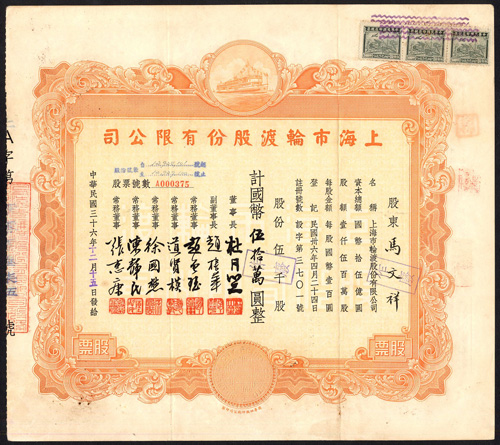 上海市輪渡股份有限公司
股東 馬文祥
名稱 上海市輪渡股份有限公司
資本總額 國幣拾伍億圓
股額 壹仟伍百萬股
每股金額 每股國幣壹百圓
登記 民國卅六年四月二十四日
註冊號數 設字第三七〇一號
股份伍千股
計國幣伍拾萬圓整
董事長 杜月笙
副董事長 趙棣華
常務董事
常務董事
常務董事 徐國懋
常務董事 陳靜民
常務董事 張惠康
股票號數 A000375
中華民國三十六年十二月十五日發給
股票
股票
A字第
號